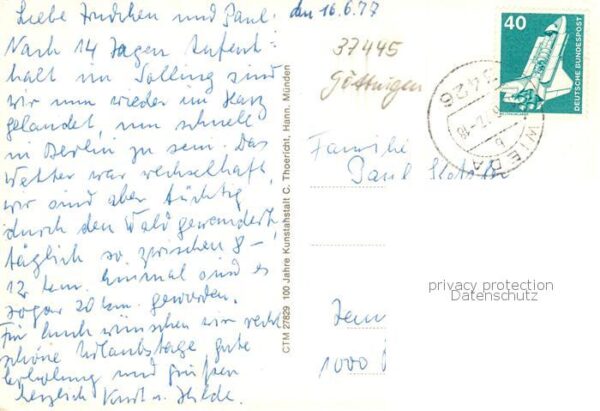 Liebe Trudchen und Paul. den 16.6.77
Nach 14 Tagen Aufent-
halt im Solling sind
wir nun wieder im Harz
gelandet, um schnell
in Berlin zu sein. Das
Wetter war wechselhaft,
wir sind aber tüchtig
durch den Wald gewandert,
täglich so zwischen 8-
12 km. Einmal sind es
sogar 20 km. geworden.
Für Euch wünschen wir recht
schöne Urlaubstage gute
Erholung und grüßen
herzlich Kurt u. Hilde.
CTM 27829 100 Jahre Kunstanstalt C. Thoericht. Hann. Münden
37445
Göttingen
40
DEUTSCHE BUNDESPOST
3426
WIEDA
b
Familie
Paul
privacy protection
Datenschutz
1000